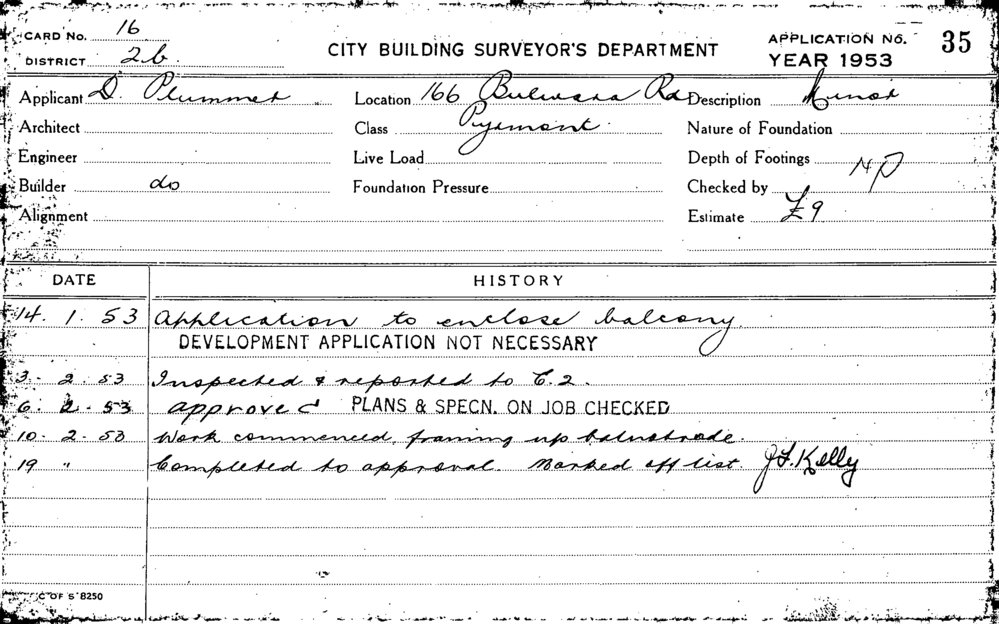 CARD No. 16
DISTRICT 2b.
CITY BUILDING SURVEYOR'S DEPARTMENT
APPLICATION No. 35
YEAR 1953
Applicant D. Plummer Location 166 Bulwara Rd Description Minor
Architect Class Pyrmont. Nature of Foundation
Engineer Live Load Depth of Footings
Builder do Foundation Pressure Checked by
Alignment Estimate £9
DATE HISTORY
14. 1. 53 Application to enclose balcony.
DEVELOPMENT APPLICATION NOT NECESSARY
3. 2. 53 Inspected & reported to C.2.
6. 2. 53 approved PLANS & SPECN. ON JOB CHECKED
10. 2. 53 Work commenced, framing up balustrade.
19 " Completed to approval. Marked off list. J.F. Kelly
C OF S 8250